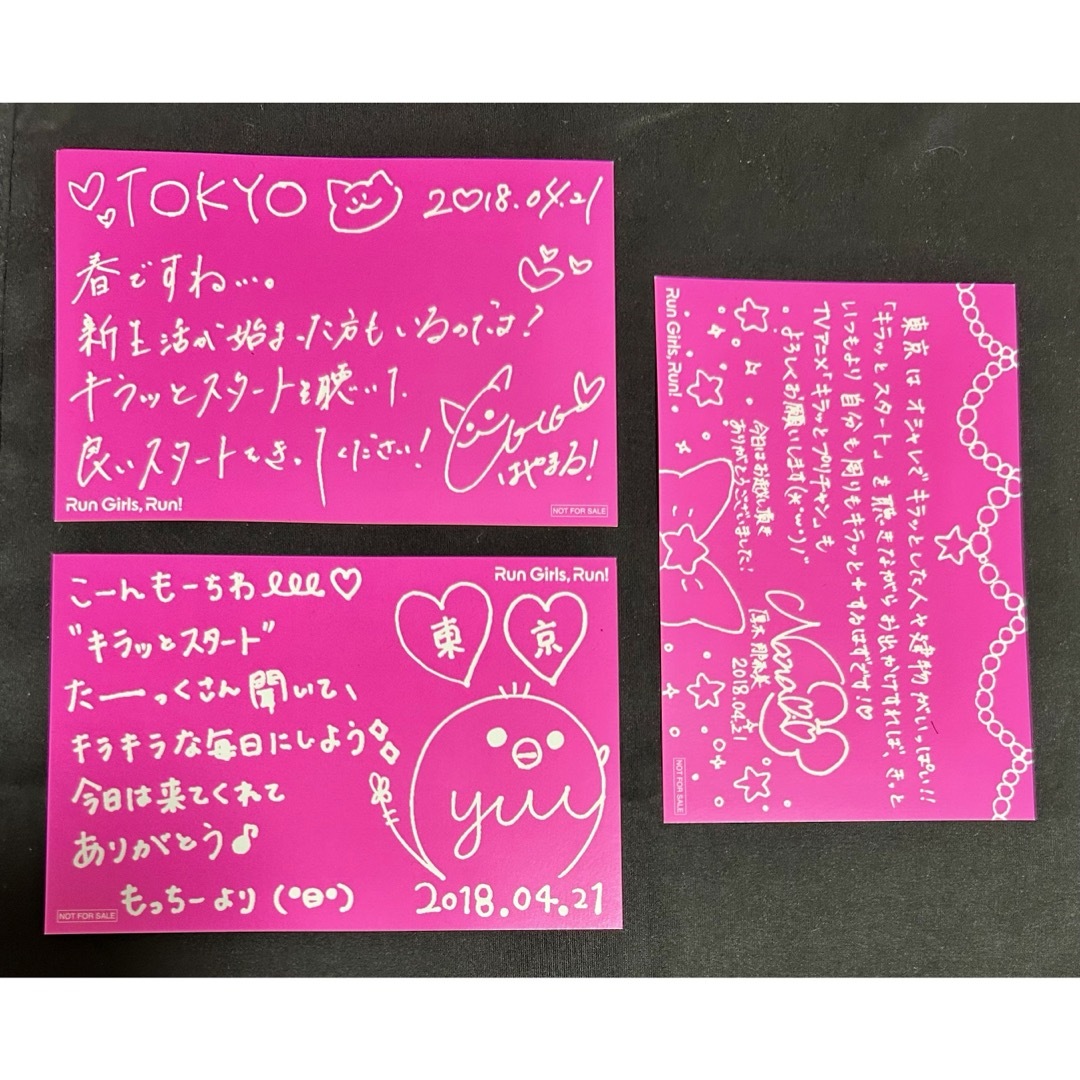 TOKYO 2018.04.21
春ですね…。
新生活が始まった方もいるのでは?
キラッとスタートを聴いて、
良いスタートをきってください!
はやまる!
Run Girls, Run!
NOT FOR SALE
こーんもーちわ
Run Girls, Run!
"キラッとスタート"
東 京
たーーっくさん聞いて、
キラキラな毎日にしよう
今日は来てくれて
yuu
ありがとう♪
もっちーより (•日•)
2018.04.21
NOT FOR SALE
東京はオシャレでキラッとした人や建物がいっぱい!!
「キラッとスタート」を聴きながらお出かけすれば、きっと
いつもより自分も周りもキラッとするはずです!♡
TVアニメ「キラッとプリチャン」も
よろしくお願いします(*'ω'*)ノ"
今日はお越し頂き
ありがとうございました!
Nanami
厚木 那奈美
2018.04.21
Run Girls, Run!
NOT FOR SALE